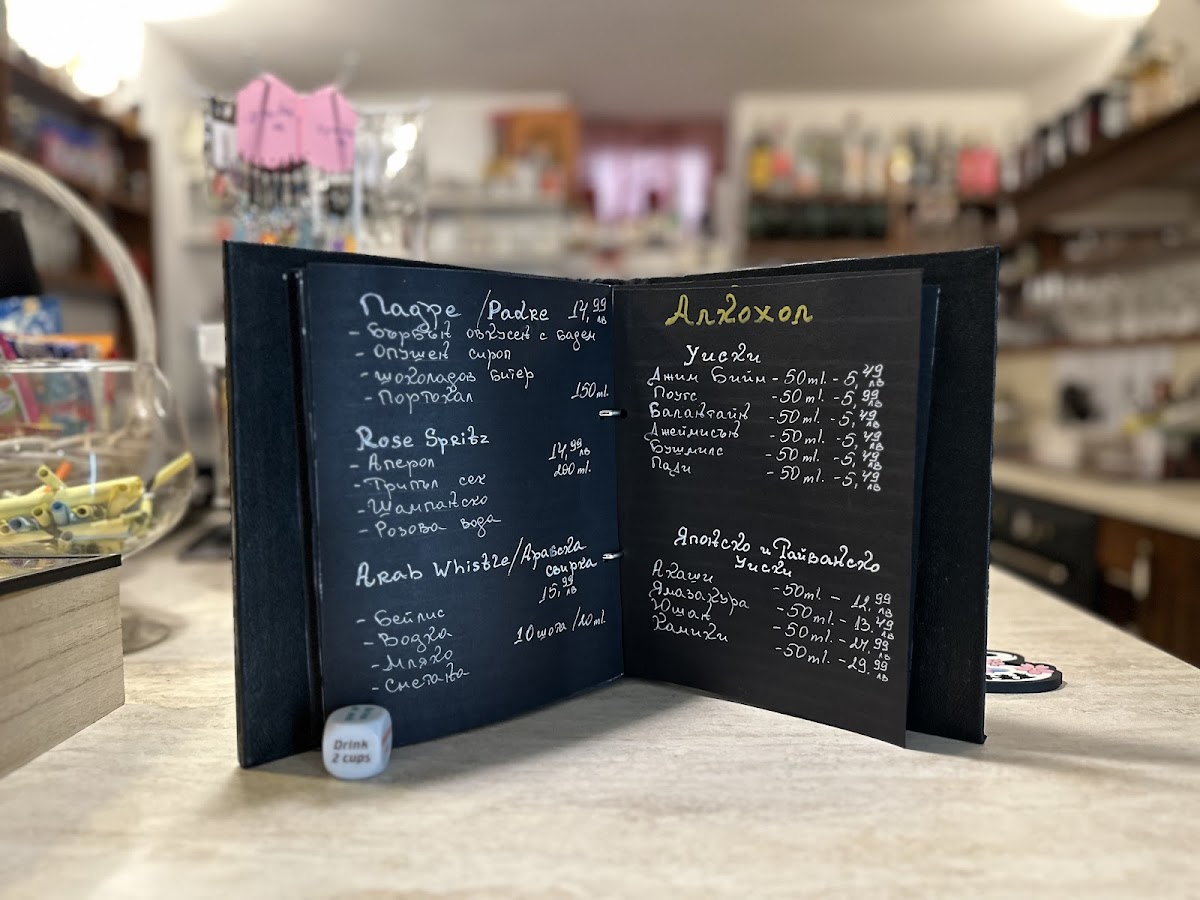 Падре / Padre 14,99 лв
- Бърбън овкусен с бадем
- Опушен сироп
- шоколадов битер
- Портокал 150 ml.
Rose Spritz
14,99 лв
- Аперол 200 ml.
- Трипъл сек
- Шампанско
- Розова вода
Arab Whistle/Арабска
свирка
15,99 лв
- Бейлис
- Водка 10 шота /20ml.
- Мляко
- Сметана
Алкохол
Уиски
Джим Бийм - 50ml. - 5,49 лв
Поугс - 50 ml. - 5,99 лв
Балантайн - 50ml. - 5,49 лв
Джеймисън - 50ml. - 5,49 лв
Бушмилс - 50ml. - 5,49 лв
Пади - 50ml. - 5,49 лв
Японско и Тайванско
Уиски
Акаши - 50ml. - 12,99 лв
Ямазакура - 50ml. - 13,49 лв
Юшан - 50ml. - 24,99 лв
Камики - 50ml. - 29,99 лв
Drink
2 cups